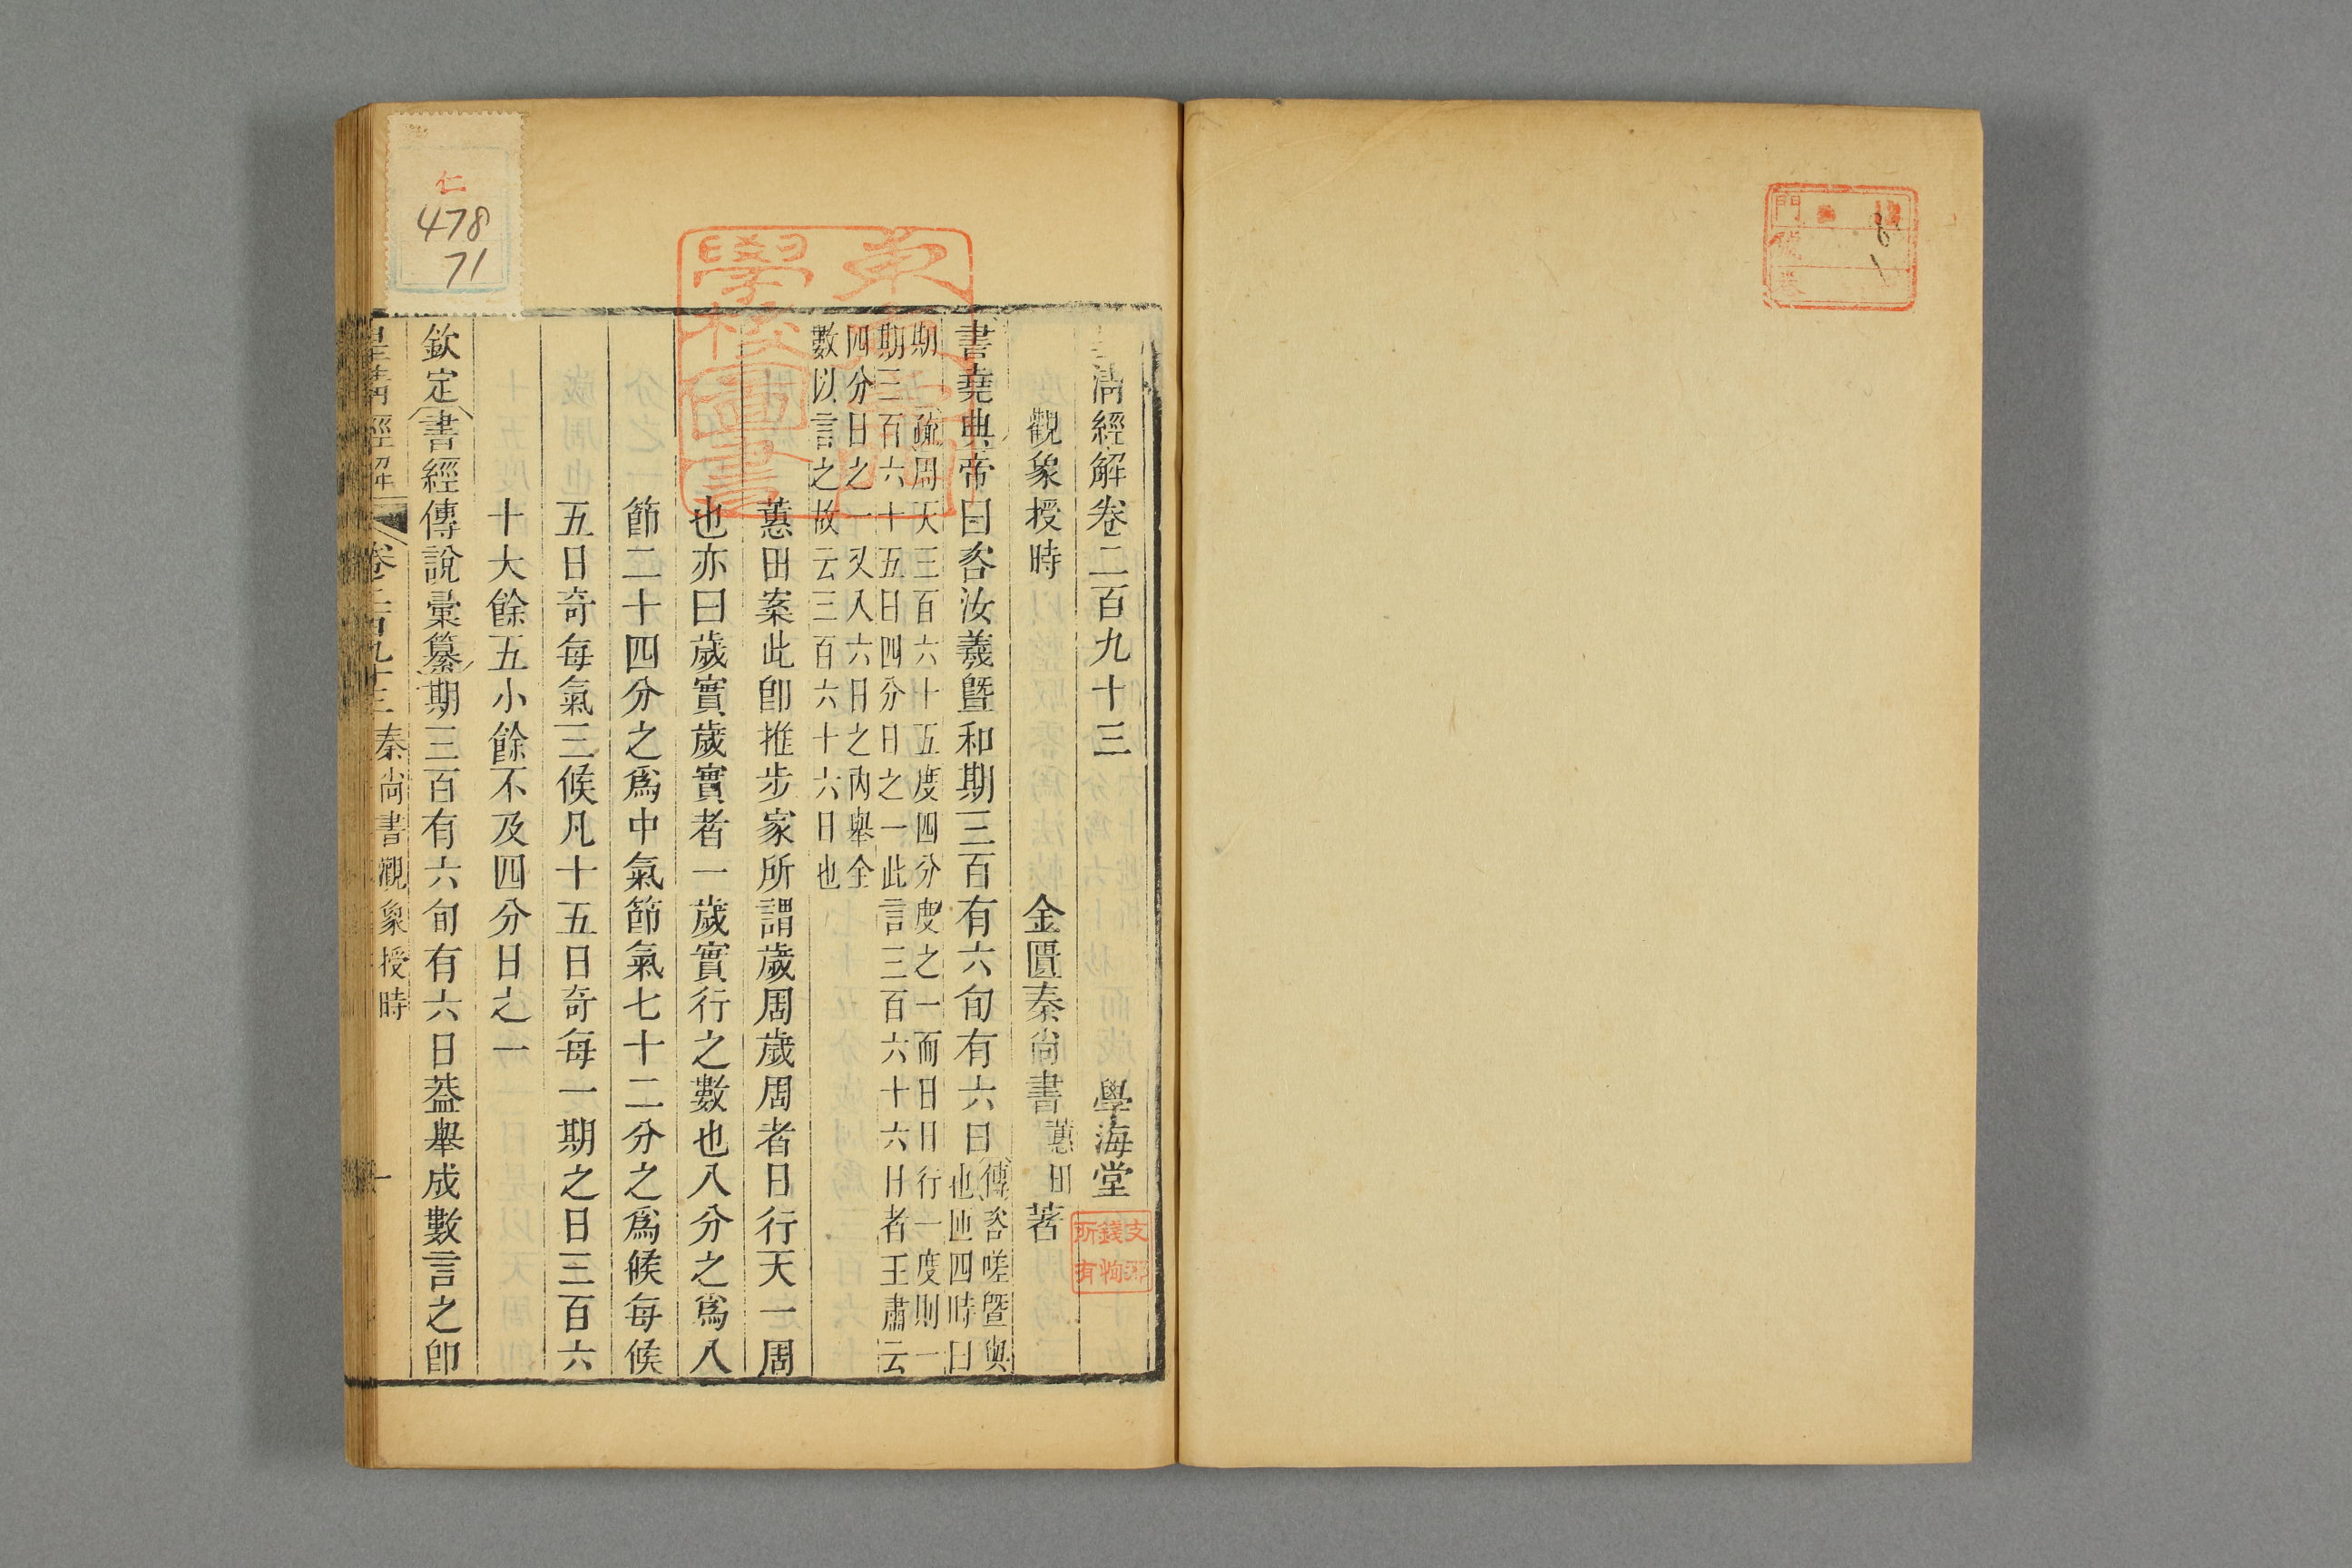 仁
478
71
皇清經解卷二百九十三
學海堂
觀象授時
金匱秦尚書蕙田著
書堯典帝曰咨汝羲暨和期三百有六旬有六日
傳咨嗟暨與
也匝四時曰
期
疏周天三百六十五度四分度之一而日日行一度則一
期三百六十五日四分日之一此言三百六十六日者王肅云
四分日之一又入六日之內舉全
數以言之故云三百六十六日也
蕙田案此卽推步家所謂歲周歲周者日行天一周
也亦曰歲實歲實者一歲實行之數也八分之爲八
節二十四分之爲中氣節氣七十二分之爲候每候
五日奇每氣三候凡十五日奇每一期之日三百六
十大餘五小餘不及四分日之一
欽定書經傳說彙纂期三百有六旬有六日葢舉成數言之卽
皇淸經解
卷二百九十三
秦尚書觀象授時
一
學校圖書
支那
錢恂
所有
門
號